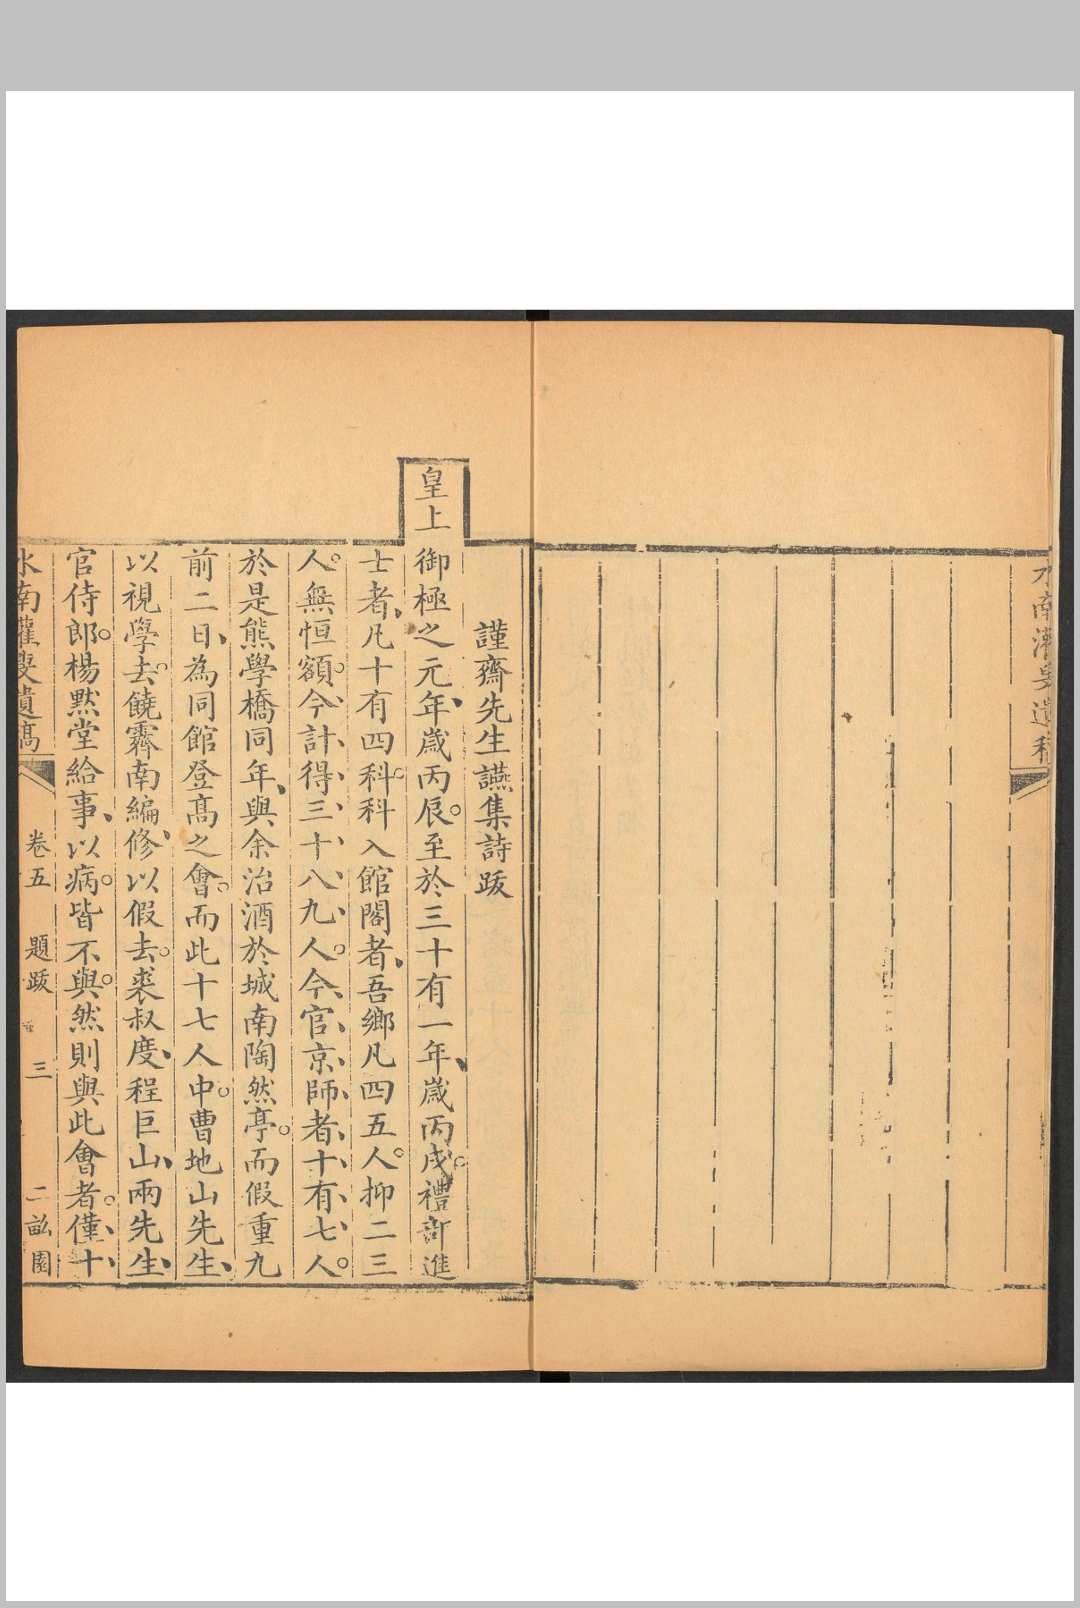 水南灌叟遺稿
謹齋先生讌集詩跋
皇上
御極之元年、歲丙辰。至於三十有一年、歲丙戌。禮部進
士者、凡十有四科。科入館閣者、吾鄉凡四五人。抑二三
人。無恒額。今、計、得、三、十、八、九、人。今、官、京、師、者、十、有、七、人。
於是熊學橋同年、與余治酒於城南陶然亭。而假重九
前二日、為同館登高之會。而此十七人中。曹地山先生、
以視學去。饒霽南編修、以假去。裘叔度、程巨山、兩先生、
官侍郎。楊黙堂給事、以病。皆不與。然則與此會者。僅、十、
水南灌叟遺稿
卷五
題跋
三
二畝園